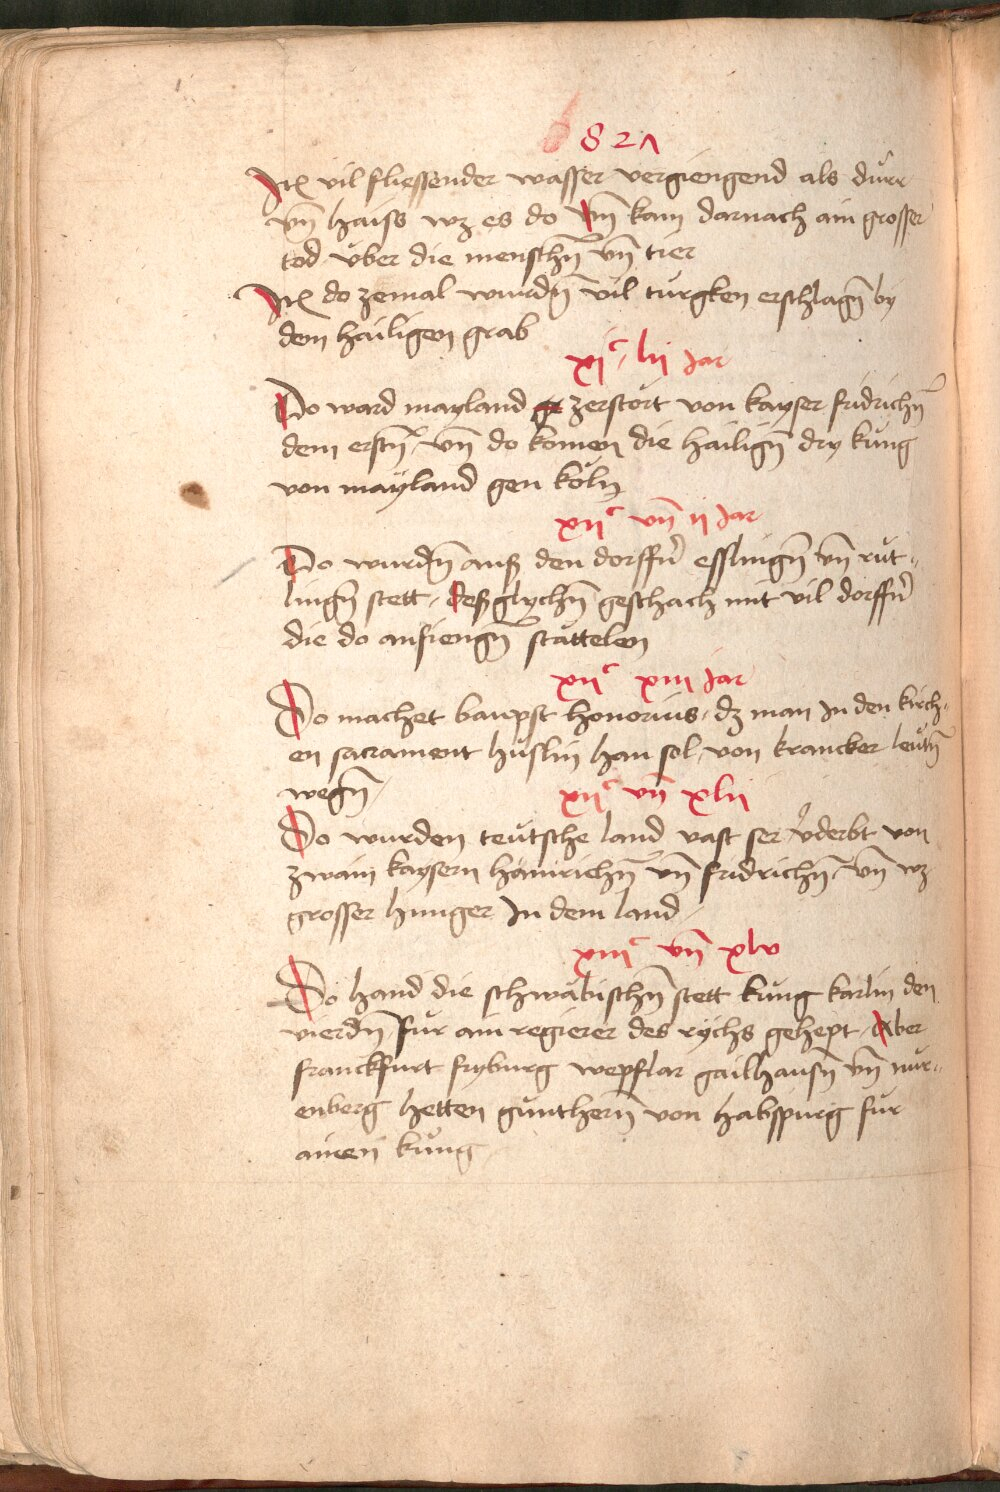 827
Itꝫ vil fliessender wasser vergiengend als dürr
vn̄ haiss wz es do vn̄ kam darnach ain grosser
tod über die menschn̄ vn̄ tier
Itꝫ do zemal wurdn̄ vil türgken erschlagn̄ by
dem hailigen grab
xjᶜ lij Jar
Do ward mayland zerstört von kayser fridrichn̄
dem erstn̄ vn̄ do komen die hailign̄ dry küng
von mayland gen köln
xijᶜ vn̄ ij Jar
Do wurdn̄ auß den dorffn̄ esslingn̄ vn̄ rüt⸗
lingn̄ stett, deß glychn̄ geschach mit vil dorffn̄
die do anfiengn̄ stättelen
xijᶜ xiij Jar
Do machet baupst honorius, dz man In den kirch⸗
en sacrament hüslin han sol, von krancker leütn̄
wegn̄
xijᶜ vn̄ xlij
Do wurden teütsche land vast ser v̓derbt von
zwain kaysern hainrichn̄ vn̄ fridrichn̄, vn̄ wz
grosser hunger In dem land
xiijᶜ vn̄ xlv
Do hand die schwäbischn̄ stett küng karlin den
vierdn̄ für ain regierer des rychs gehept, Aber
franckfurt fryburg wepflar gailhausn̄ vn̄ nür⸗
enberg hetten günthern̄ von habspurg für
ainen küng